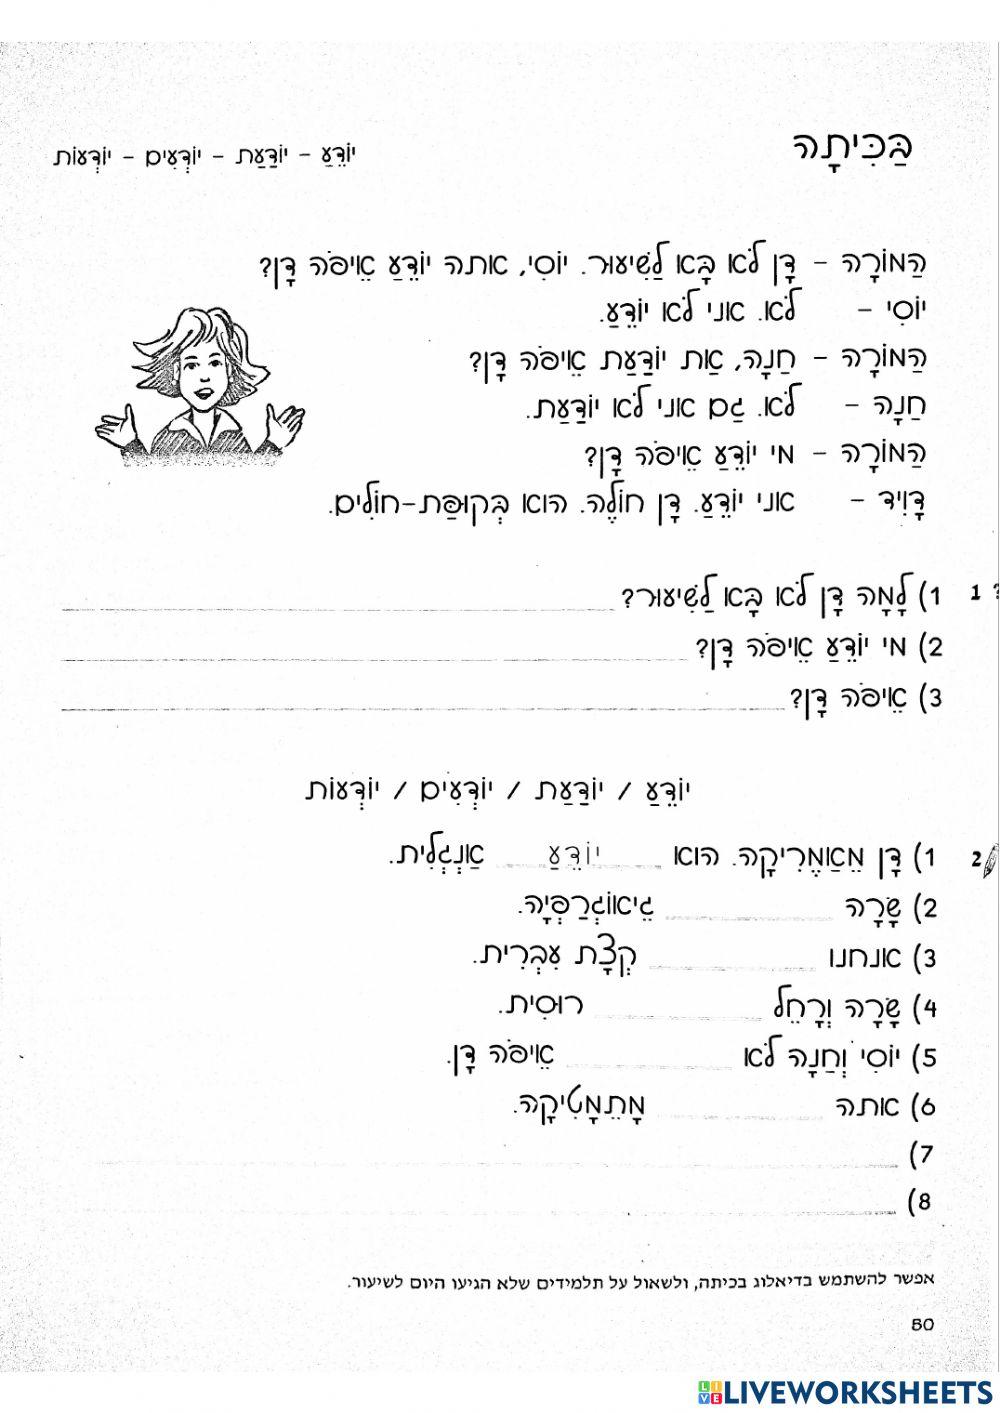 בַּכִּיתָה
יוֹדֵעַ – יוֹדַעַת – יוֹדְעִים – יוֹדְעוֹת
הַמוֹרָה – דָּן לֹא בָּא לַשִּׁיעוּר. יוֹסִי, אתה יוֹדֵעַ אֵיפֹה דָּן?
יוֹסִי – לֹא. אני לֹא יוֹדֵעַ.
הַמוֹרָה – חַנָה, אַת יוֹדַעַת אֵיפֹה דָּן?
חַנָה – לֹא. גַם אני לֹא יוֹדַעַת.
הַמוֹרָה – מי יוֹדֵעַ אֵיפֹה דָּן?
דָּוִיד – אני יוֹדֵעַ. דָּן חוֹלֶה. הוא בְּקוּפַּת-חוֹלִים.
1 ?
1) לָמָה דָּן לֹא בָּא לַשִּׁיעוּר?
2) מי יוֹדֵעַ אֵיפֹה דָּן?
3) אֵיפֹה דָּן?
יוֹדֵעַ / יוֹדַעַת / יוֹדְעִים / יוֹדְעוֹת
2
1) דָּן מֵאַמֶרִיקָה. הוא יוֹדֵעַ אַנְגְלִית.
2) שָׂרָה ______ גֵיאוֹגְרַפְיָה.
3) אנחנו ______ קְצָת עִבְרִית.
4) שָׂרָה וְרָחֵל ______ רוּסִית.
5) יוֹסִי וְחַנָה לֹא ______ אֵיפֹה דָּן.
6) אתה ______ מָתֵמָטִיקָה.
7)
8)
אפשר להשתמש בדיאלוג בכיתה, ולשאול על תלמידים שלא הגיעו היום לשיעור.
80
LIVEWORKSHEETS